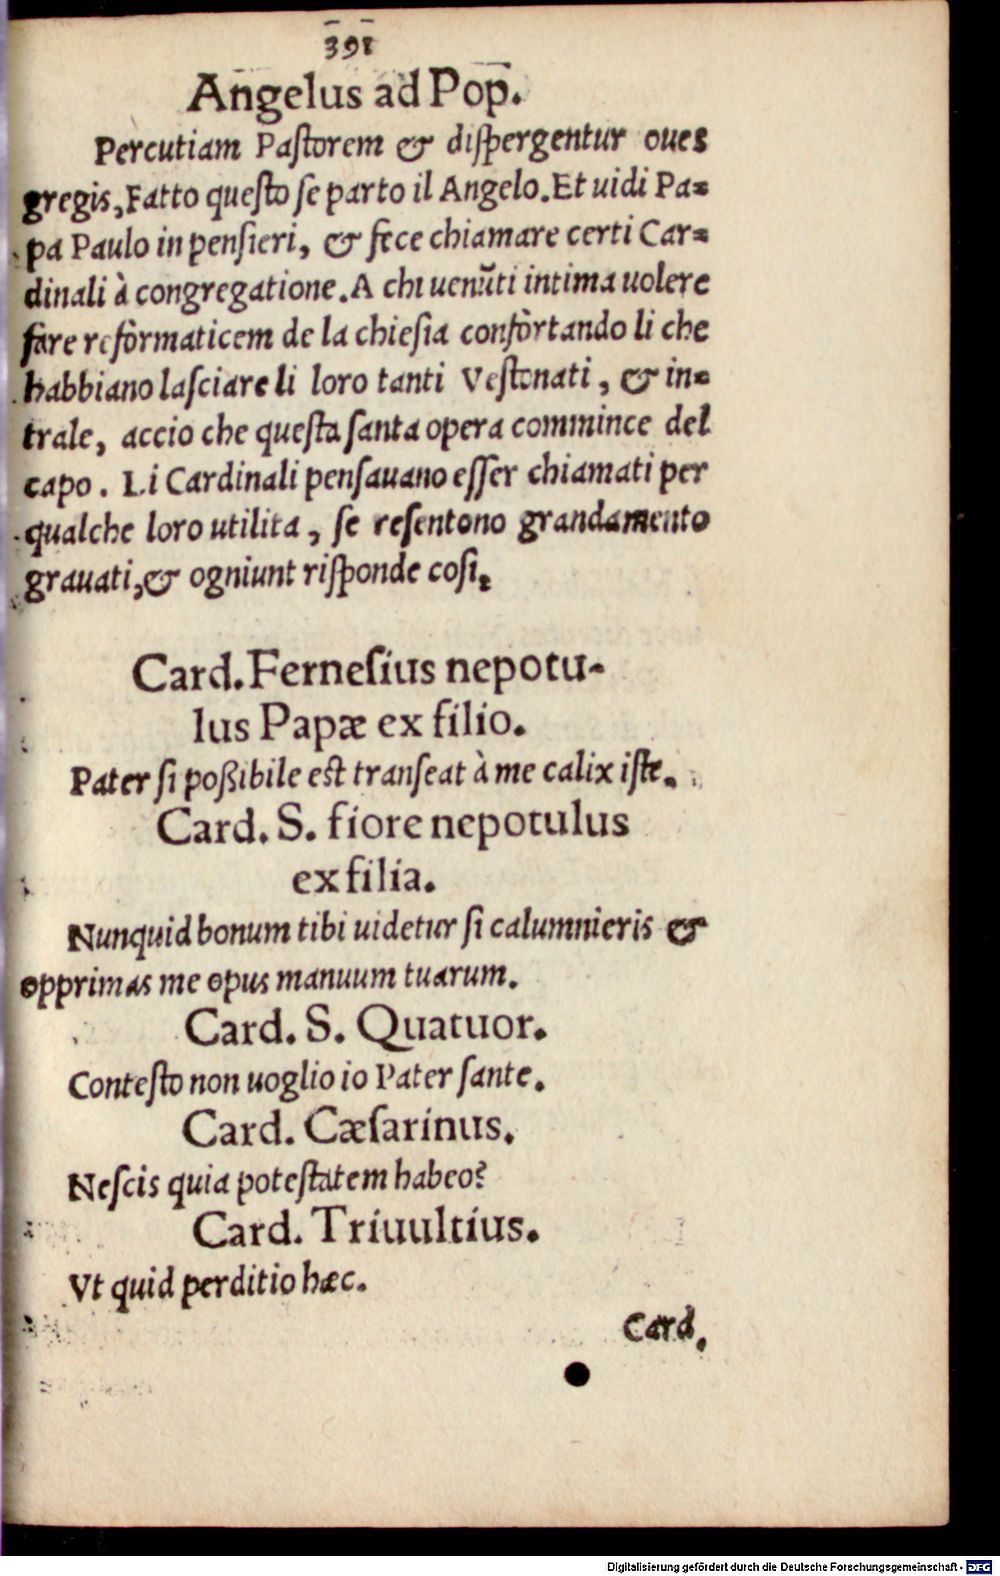 391
Angelus ad Pop̄.
Percutiam Paſtorem & diſpergentur oues
gregis, Fatto queſto ſe parto il Angelo. Et uidi Pa=
pa Paulo in penſieri, & fece chiamare certi Car=
dinali à congregatione. A chi uenūti intima uolere
fare reformaticem de la chieſia confortando li che
habbiano laſciare li loro tanti Veſtonati, & in=
trale, accio che queſta ſanta opera commince del
capo. Li Cardinali penſauano eſſer chiamati per
qualche loro utilita, ſe reſentono grandamento
grauati, & ogniunt riſponde coſi.
Card. Ferneſius nepotu-
lus Papæ ex filio.
Pater ſi poßibile est tranſeat à me calix iſte.
Card. S. fiore nepotulus
ex filia.
Nunquid bonum tibi uidetur ſi calumnieris &
opprimas me opus manuum tuarum.
Card. S. Quatuor.
Conteſto non uoglio io Pater ſante.
Card. Cæſarinus.
Neſcis quia poteſtatem habeo?
Card. Triuultius.
Vt quid perditio hæc.
Card.
Digitalisierung gefördert durch die Deutsche Forschungsgemeinschaft - DFG